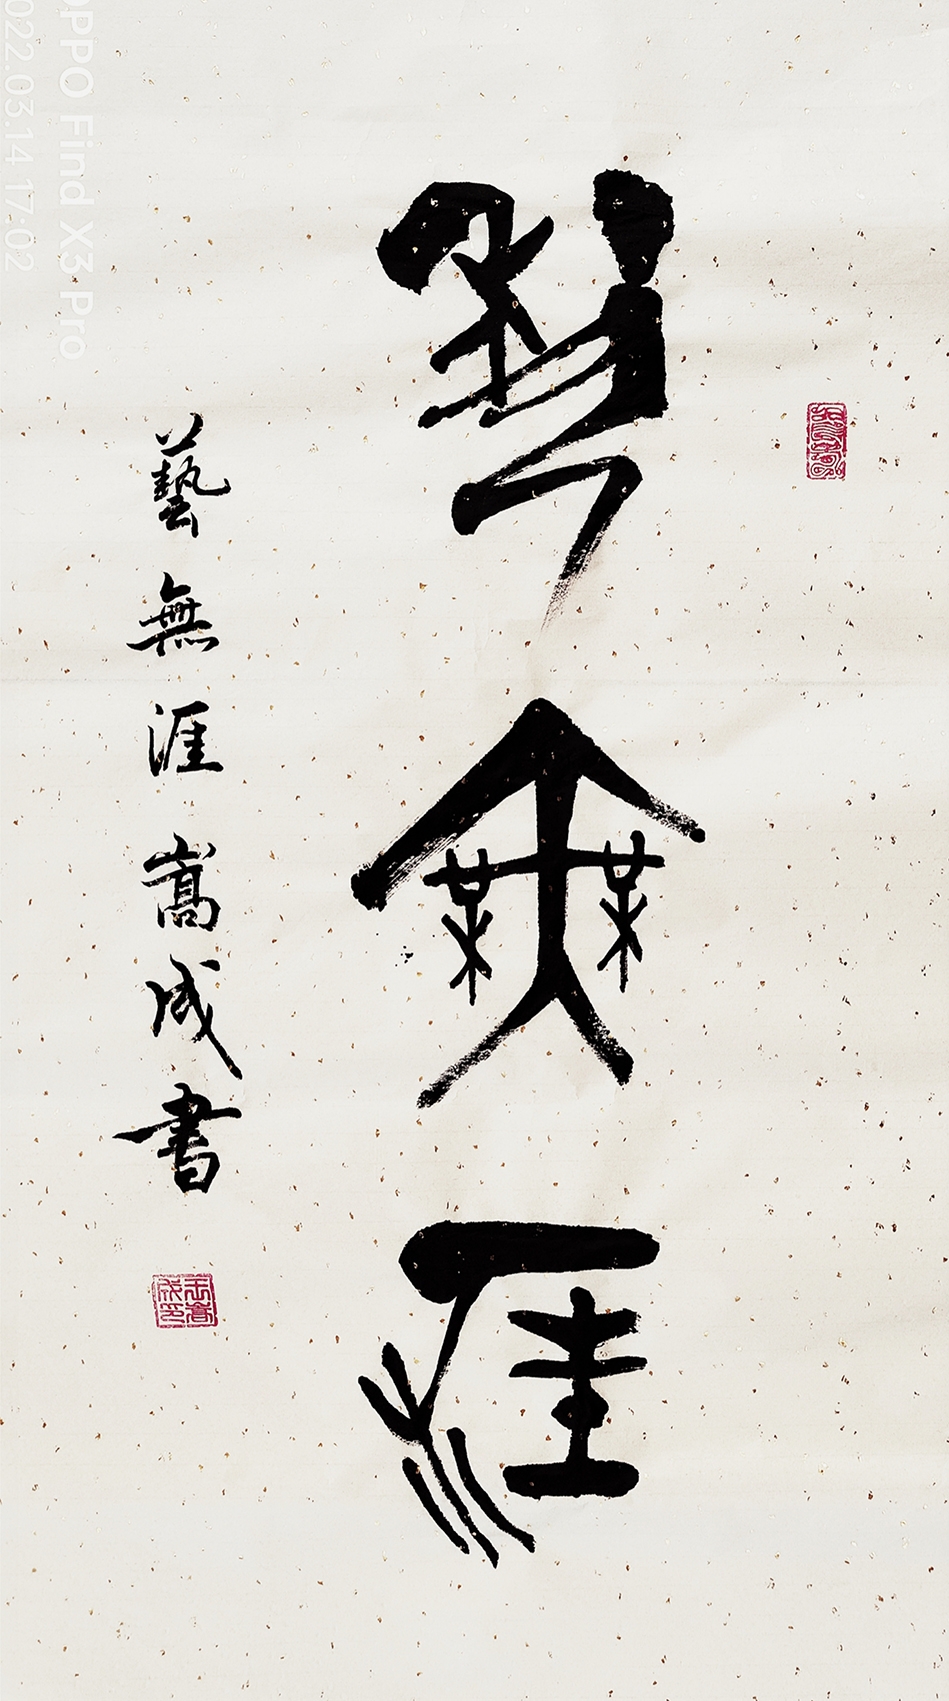 藝無涯
藝無涯嵩成書
OPPO Find X3 Pro
2022.03.14 17:02